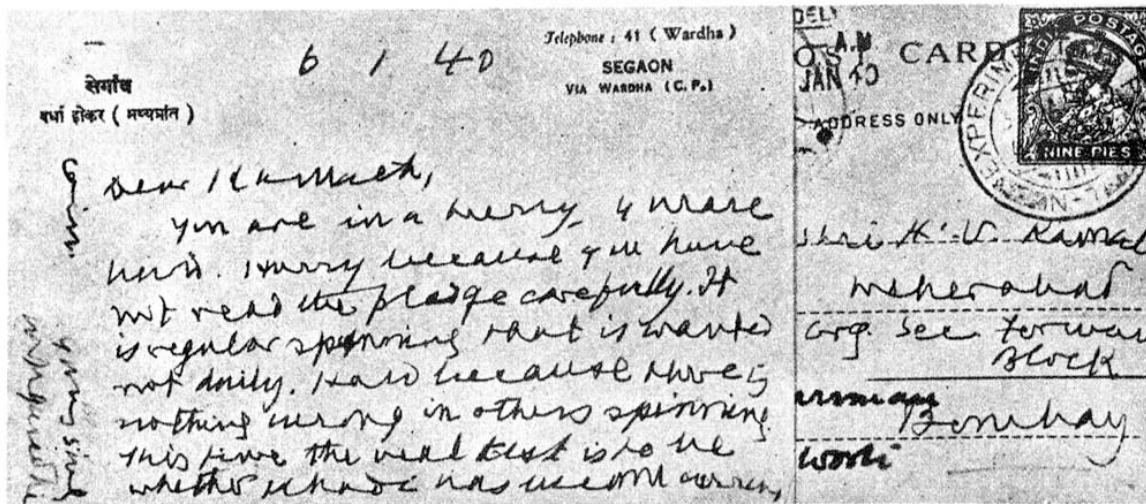 6 1 40
Telephone : 41 ( Wardha )
SEGAON
VIA WARDHA ( C. P. )
सेगांव
वर्धा होकर ( मध्यप्रांत )
Dear Kamath,
You are in a hurry, & are
hard. Hurry because you have
not read the pledge carefully. It
is regular spinning that is wanted
not daily. Hard because there is
nothing wrong in others spinning.
This time the real test is to be
whether khadi has
yours sinc
mkgandhi
POST CARD
JAN 40
ADDRESS ONLY
INDIA POSTAGE
NINE PIES
EXPERIMENT
Shri H. V. Kamath
Meherabad
Org. Sec. Forward
Block
Bombay
Worli